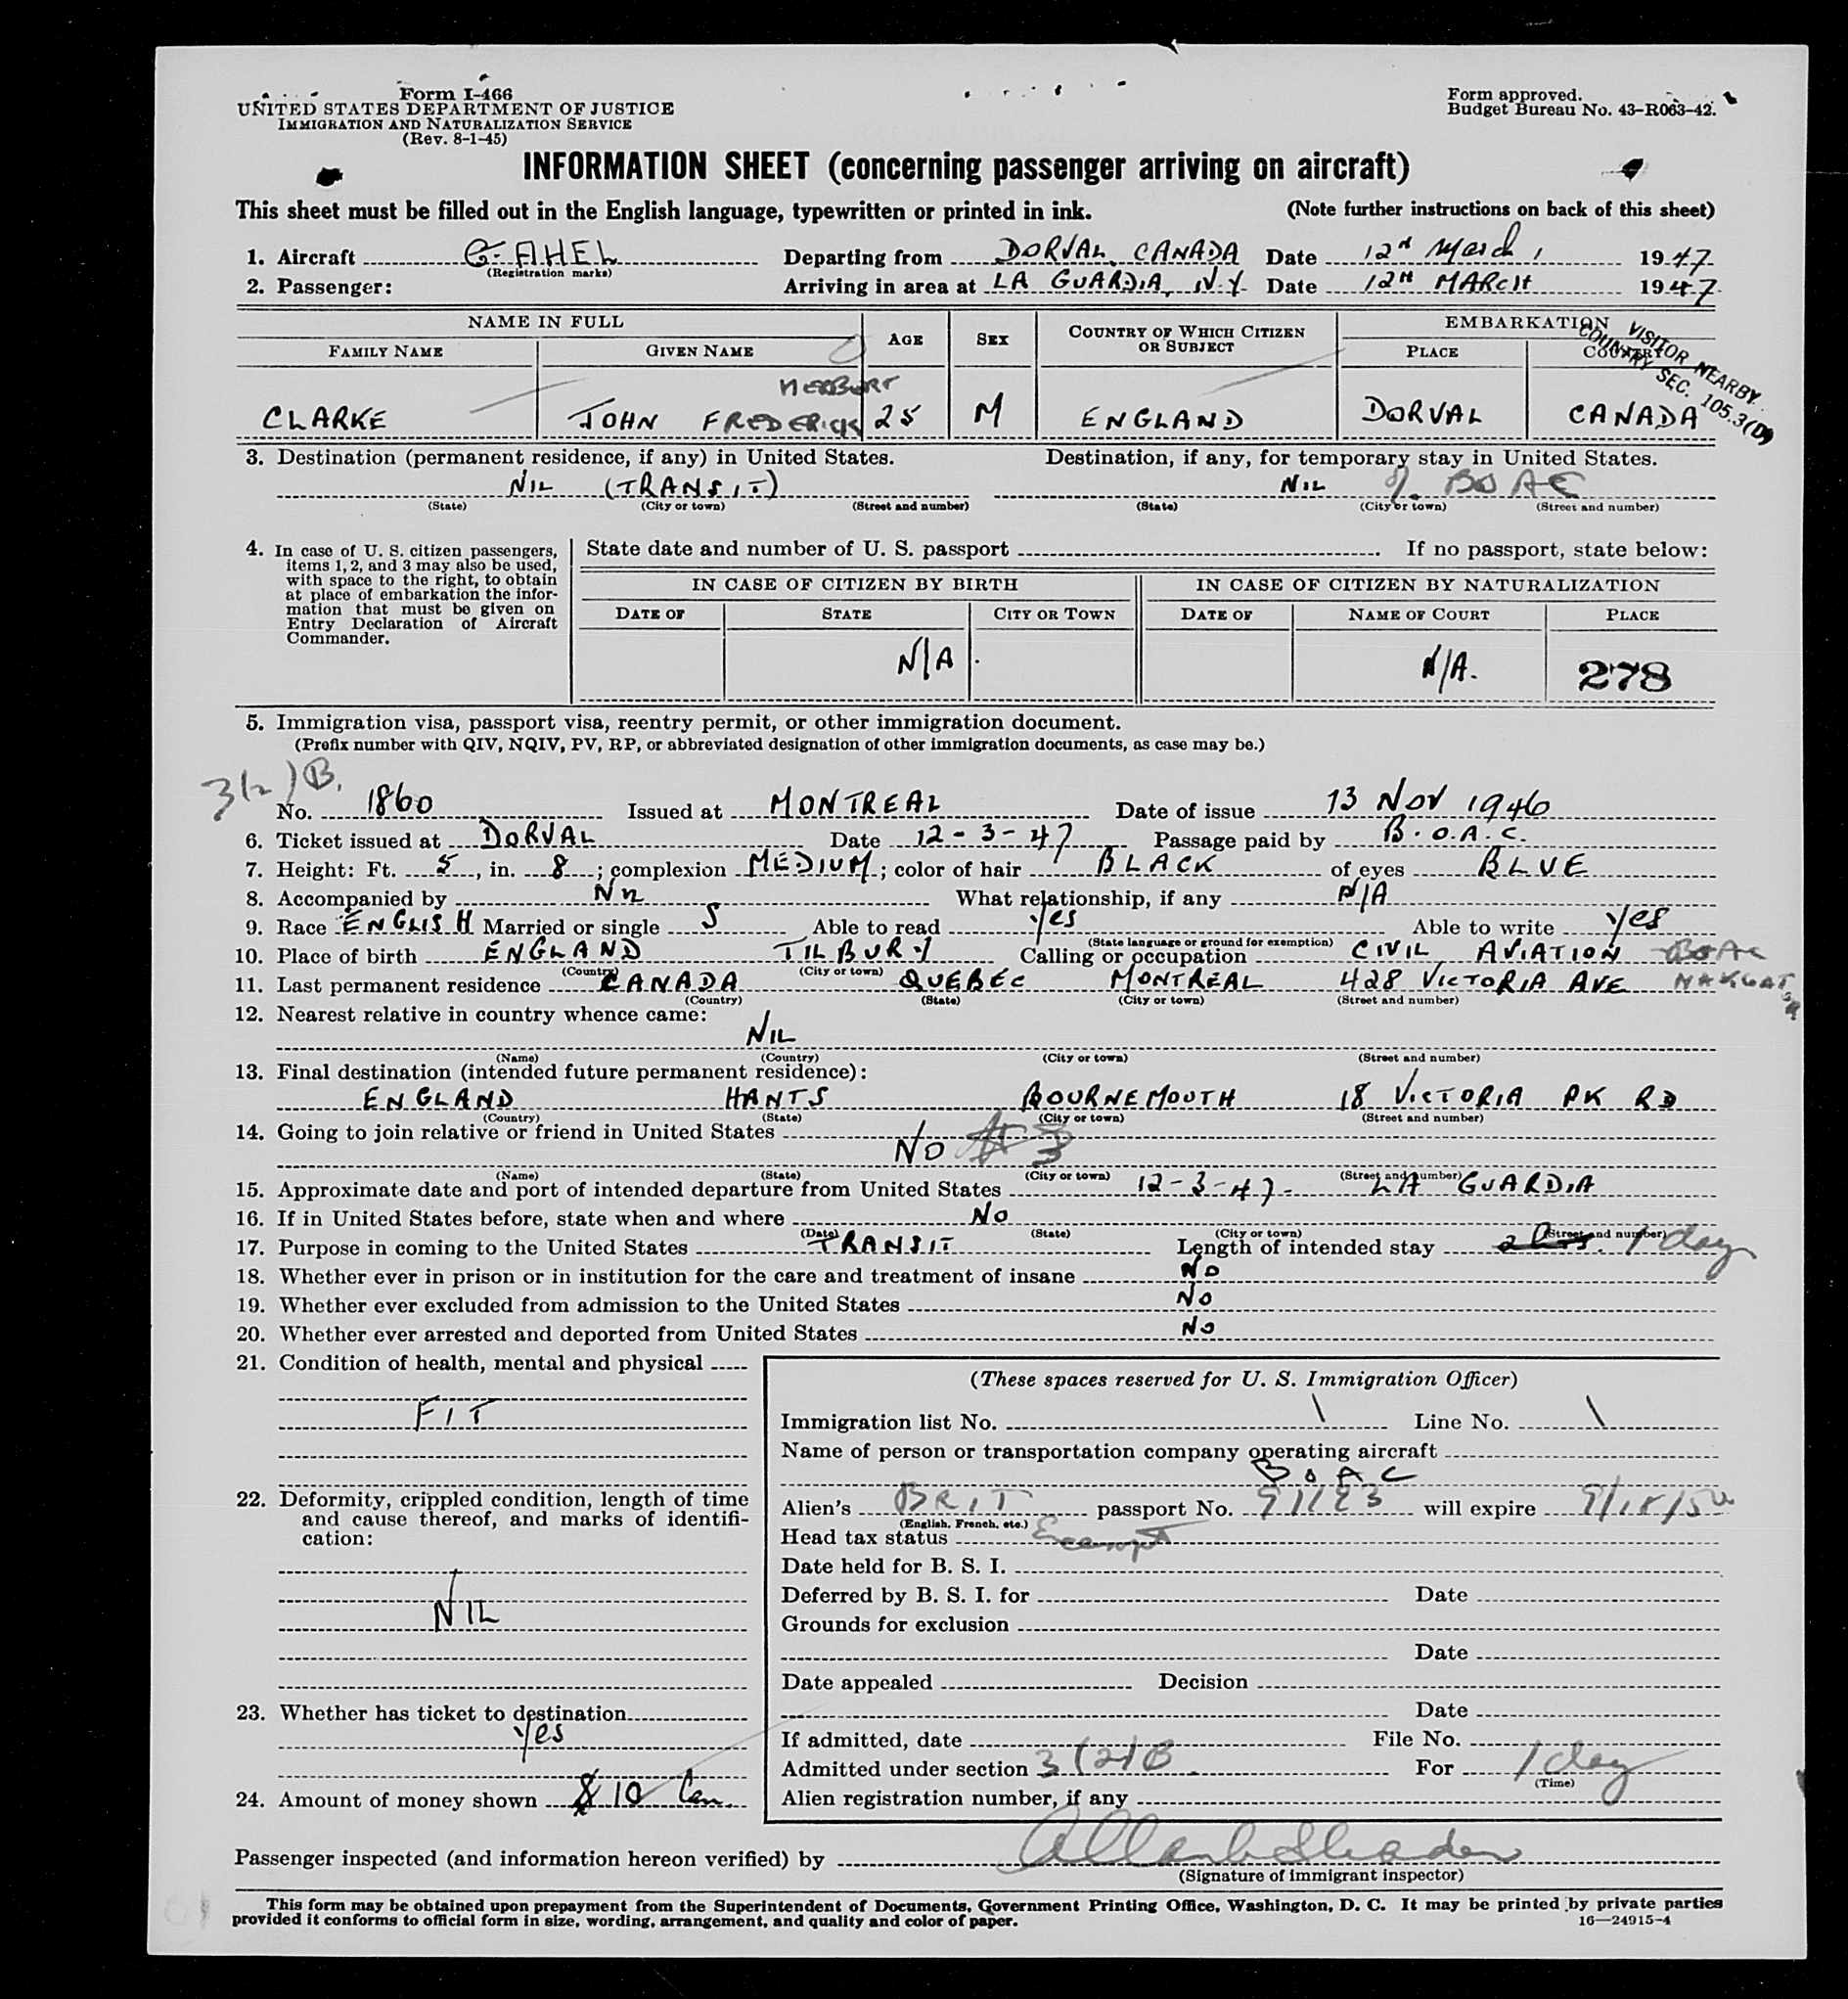 Form I-466
UNITED STATES DEPARTMENT OF JUSTICE
IMMIGRATION AND NATURALIZATION SERVICE
(Rev. 8-1-45)
Form approved.
Budget Bureau No. 43-R063-42.
INFORMATION SHEET (concerning passenger arriving on aircraft)
This sheet must be filled out in the English language, typewritten or printed in ink. (Note further instructions on back of this sheet)
1. Aircraft G-AHEL Departing from DORVAL, CANADA Date 12th March, 1947
(Registration marks)
2. Passenger: Arriving in area at LA GUARDIA, N.Y Date 12TH MARCH 1947
NAME IN FULL AGE SEX COUNTRY OF WHICH CITIZEN OR SUBJECT EMBARKATION
FAMILY NAME GIVEN NAME PLACE COUNTRY
VISITOR NEARBY
COUNTRY SEC. 105.3(D)
HERBERT
CLARKE JOHN FREDERICK 25 M ENGLAND DORVAL CANADA
3. Destination (permanent residence, if any) in United States. Destination, if any, for temporary stay in United States.
NIL (TRANSIT) NIL % BOAC
(State) (City or town) (Street and number) (State) (City or town) (Street and number)
4. In case of U. S. citizen passengers, items 1, 2, and 3 may also be used, with space to the right, to obtain at place of embarkation the information that must be given on Entry Declaration of Aircraft Commander.
State date and number of U. S. passport If no passport, state below:
IN CASE OF CITIZEN BY BIRTH IN CASE OF CITIZEN BY NATURALIZATION
DATE OF STATE CITY OR TOWN DATE OF NAME OF COURT PLACE
N/A N/A. 278
5. Immigration visa, passport visa, reentry permit, or other immigration document.
(Prefix number with QIV, NQIV, PV, RP, or abbreviated designation of other immigration documents, as case may be.)
3(2)B.
No. 1860 Issued at MONTREAL Date of issue 13 NOV 1946
6. Ticket issued at DORVAL Date 12-3-47 Passage paid by B.O.A.C.
7. Height: Ft. 5, in. 8; complexion MEDIUM; color of hair BLACK of eyes BLUE
8. Accompanied by NIL What relationship, if any N/A
9. Race ENGLISH Married or single S Able to read Yes Able to write Yes
(State language or ground for exemption)
10. Place of birth ENGLAND TILBURY Calling or occupation CIVIL AVIATION BOAC
(Country) (City or town)
11. Last permanent residence CANADA QUEBEC MONTREAL 428 VICTORIA AVE
(Country) (State) (City or town) (Street and number)
12. Nearest relative in country whence came:
NIL
(Name) (Country) (City or town) (Street and number)
13. Final destination (intended future permanent residence):
ENGLAND HANTS BOURNEMOUTH 18 VICTORIA PK RD
(Country) (State) (City or town) (Street and number)
14. Going to join relative or friend in United States
NO # 3
(Name) (State) (City or town) (Street and number)
15. Approximate date and port of intended departure from United States 12-3-47- LA GUARDIA
16. If in United States before, state when and where No
(Date) (State) (City or town) (Street and number)
17. Purpose in coming to the United States TRANSIT Length of intended stay 1 day
18. Whether ever in prison or in institution for the care and treatment of insane No
19. Whether ever excluded from admission to the United States No
20. Whether ever arrested and deported from United States No
21. Condition of health, mental and physical
FIT
22. Deformity, crippled condition, length of time and cause thereof, and marks of identification:
NIL
23. Whether has ticket to destination
Yes
24. Amount of money shown $10 Can.
(These spaces reserved for U. S. Immigration Officer)
Immigration list No. 1 Line No. 1
Name of person or transportation company operating aircraft
BOAC
Alien's BRIT passport No. will expire
(English, French, etc.)
Head tax status Exempt
Date held for B. S. I.
Deferred by B. S. I. for Date
Grounds for exclusion
Date
Date appealed Decision
Date
If admitted, date File No.
Admitted under section 3(2)B. For 1 day
(Time)
Alien registration number, if any
Passenger inspected (and information hereon verified) by
(Signature of immigrant inspector)
This form may be obtained upon prepayment from the Superintendent of Documents, Government Printing Office, Washington, D. C. It may be printed by private parties
provided it conforms to official form in size, wording, arrangement, and quality and color of paper. 16—24915-4